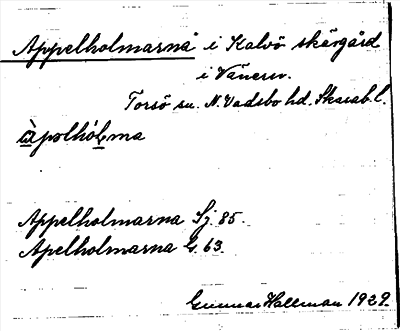 Appelholmarna i Kalvö skärgård
i Vänern.
Torsö sn. N. Vadsbo hd. Skarab. l.
àpəlhól̥ma
Appelholmarna Sj. 85.
Apelholmarna G. 63.
Gunnar Hallman 1929.